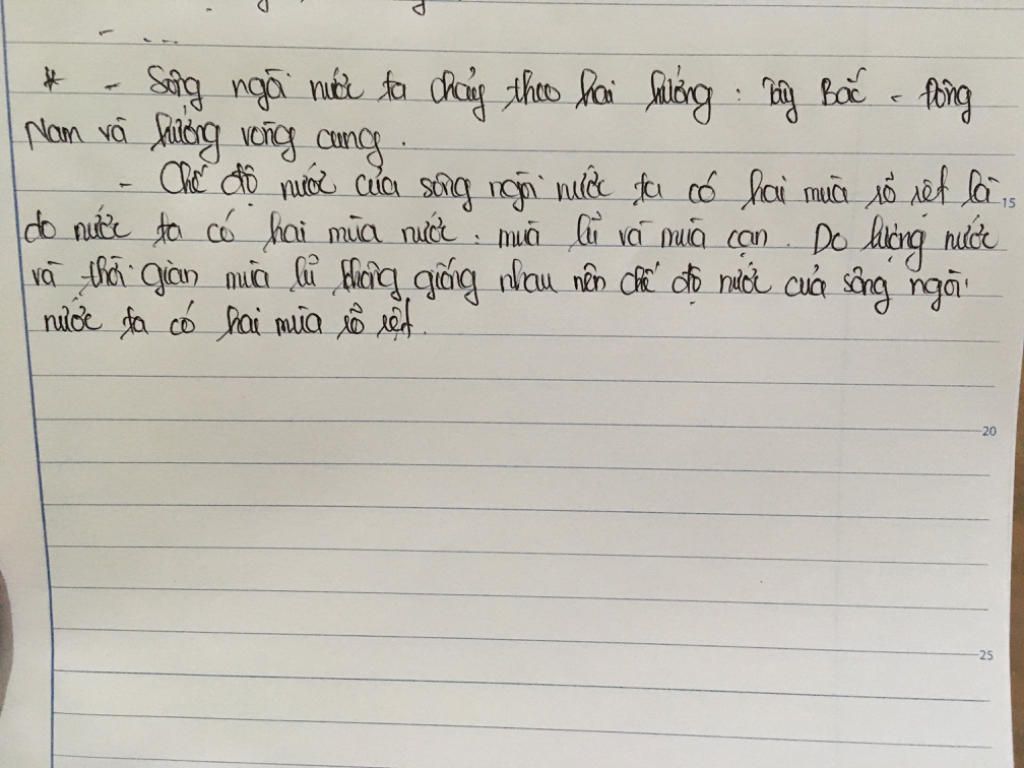 - ...
* - Sông ngòi nước ta chảy theo hai hướng : Tây Bắc - Đông
Nam và hướng vòng cung .
- Chế độ nước của sông ngòi nước ta có hai mùa rõ rệt là 15
do nước ta có hai mùa nước : mùa lũ và mùa cạn . Do lượng nước
và thời gian mùa lũ không giống nhau nên chế độ nước của sông ngòi
nước ta có hai mùa rõ rệt.
20
25